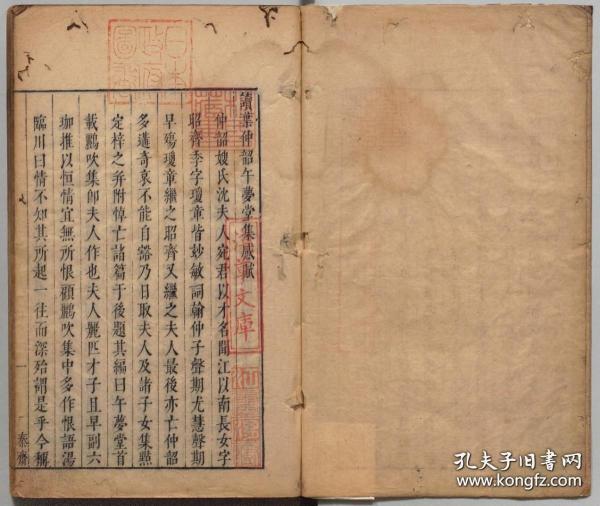 讀葉仲韶午夢堂集感賦
仲韶嫂氏沈夫人宛君以才名聞江以南長女字
昭齊季字瓊章皆玅敏詞翰仲子聲期尤慧聲期
早殤瓊章繼之昭齊又繼之夫人最後亦亡仲韶
多遘奇哀不能自豁乃日取夫人及諸子女集㸃
定梓之幷附悼亡諸篇于後題其編曰午夢堂首
載鸝吹集卽夫人作也夫人麗匹才子且早副六
珈推以恒情宜無所恨顧鸝吹集中多作恨語湯
臨川曰情不知其所起一往而深殆謂是乎今稱
一
秦齋
日本
政府
圖書
文庫
孔夫子旧书网
www.kongfz.com